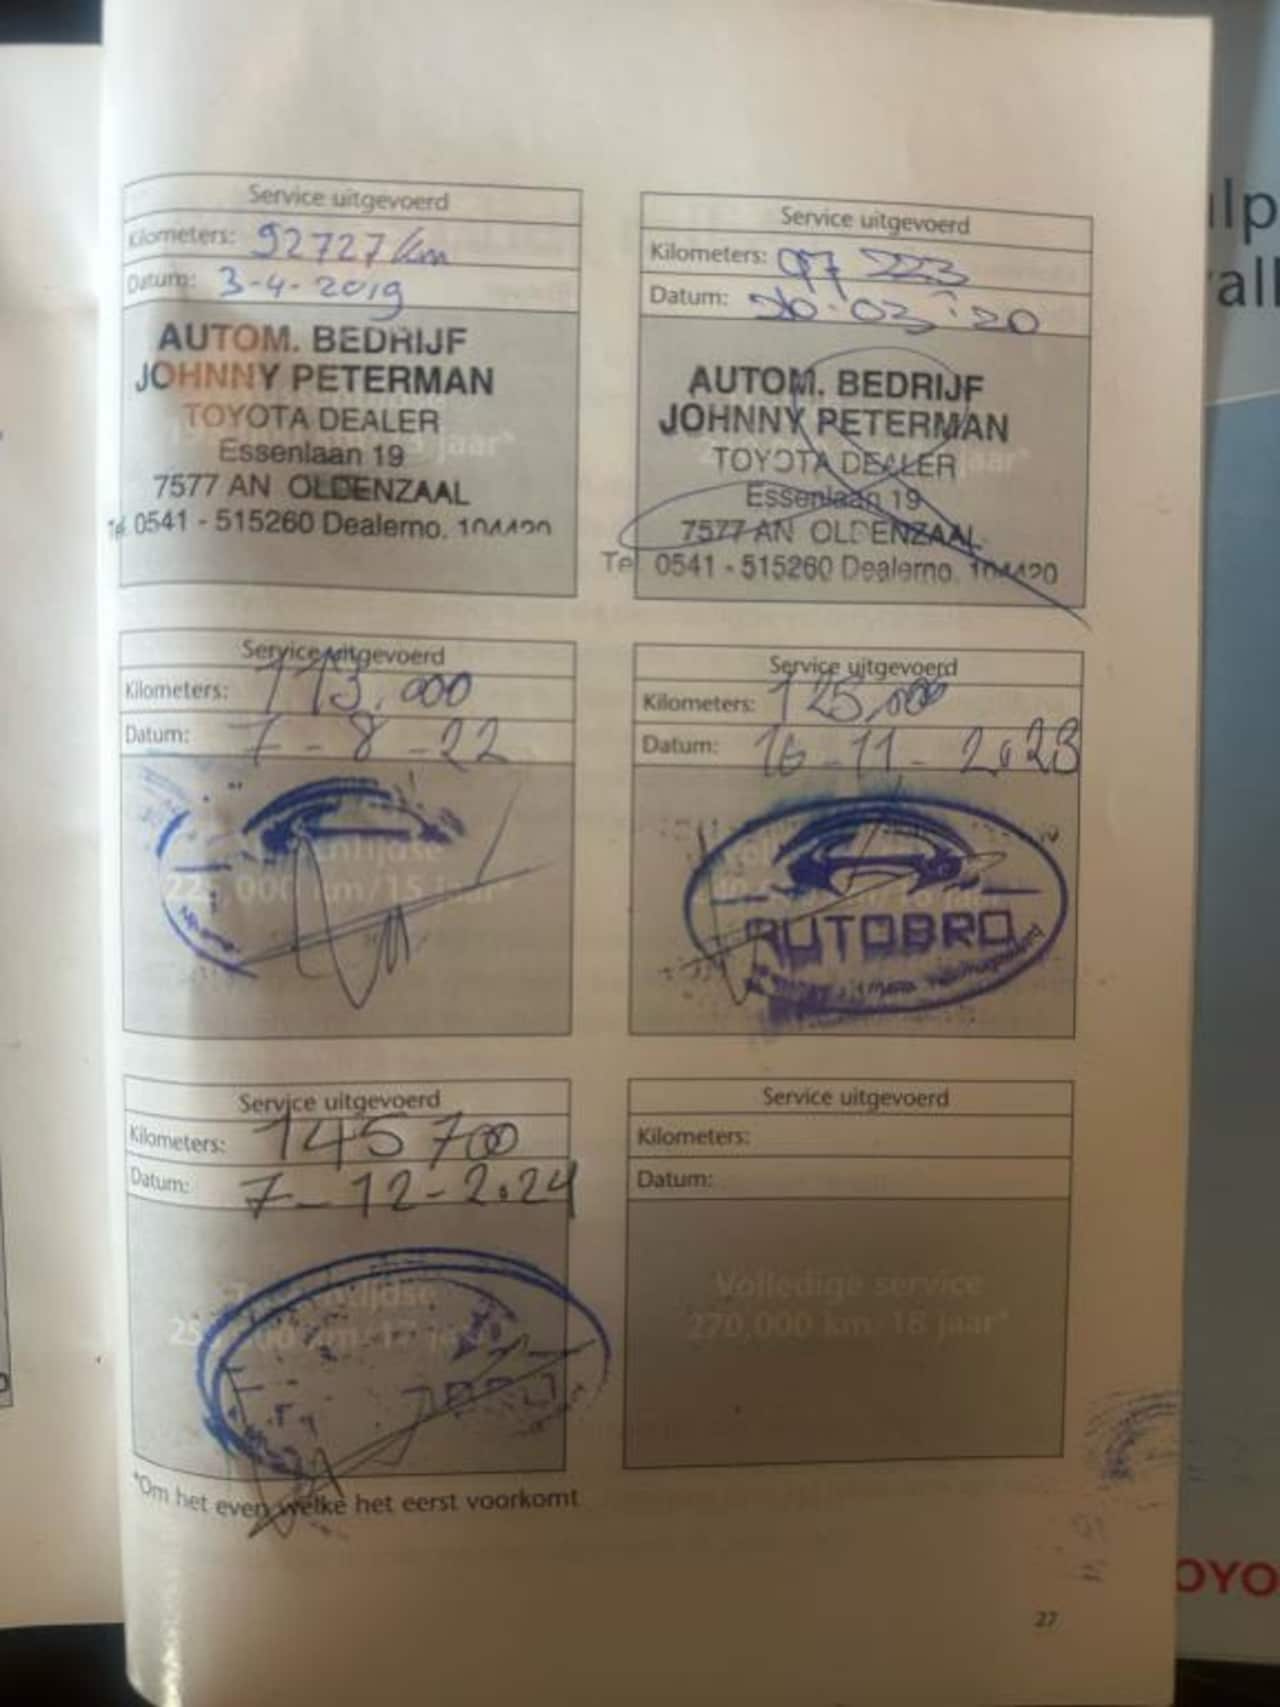 Service uitgevoerd
Kilometers: 92727 km
Datum: 3-4-2019
AUTOM. BEDRIJF
JOHNNY PETERMAN
TOYOTA DEALER
jaar*
Essenlaan 19
7577 AN OLDENZAAL
Tel. 0541 - 515260 Dealerno. 104420
Service uitgevoerd
Kilometers: 97 223
Datum: 26-03-'20
AUTOM. BEDRIJF
JOHNNY PETERMAN
TOYOTA DEALER
jaar*
Essenlaan 19
7577 AN OLDENZAAL
Tel 0541 - 515260 Dealerno. 104420
Service uitgevoerd
Kilometers: 113.000
Datum: 7-8-22
225.000 km/15 jaar*
Service uitgevoerd
Kilometers: 125,000
Datum: 16-11-2023
AUTOBRO
Service uitgevoerd
Kilometers: 145700
Datum: 7-12-2024
Service uitgevoerd
Kilometers:
Datum:
Volledige service
270.000 km/18 jaar*
*Om het even welke het eerst voorkomt
27
ulp
all
OYO